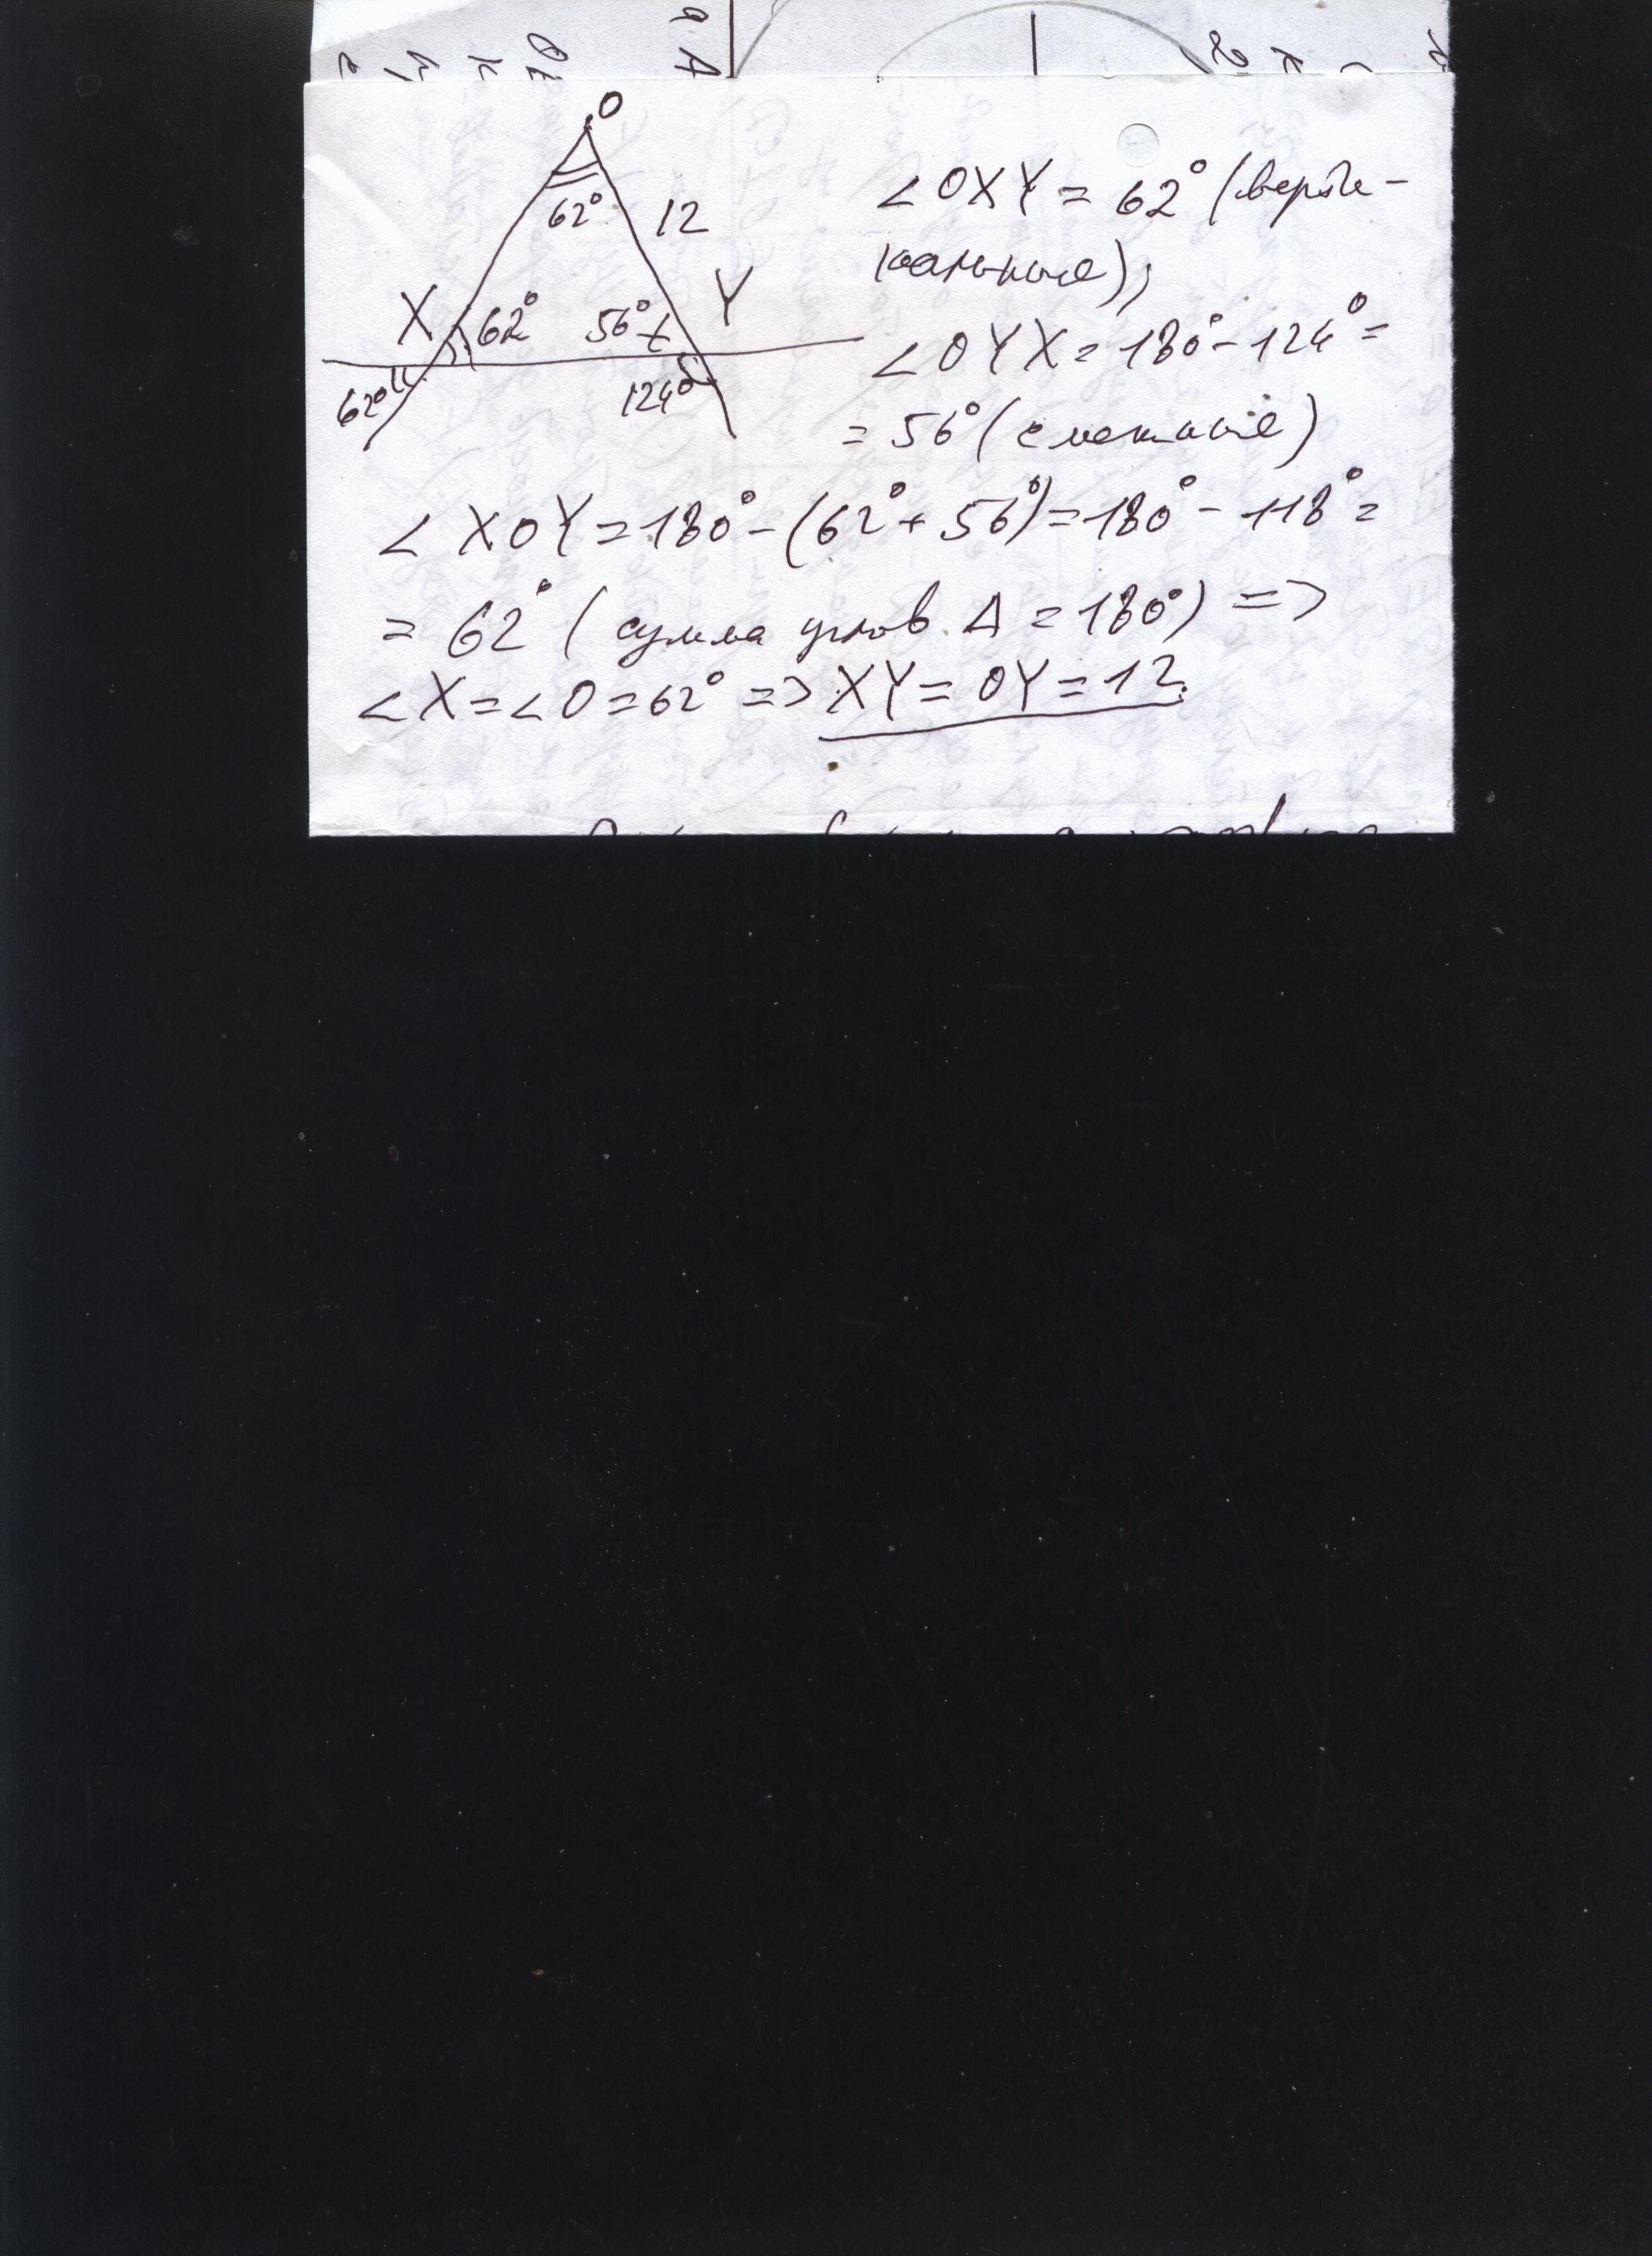 O
62° 12
X 62° 56° Y
62° 124°
∠OXY = 62° (верти-
кальные);
∠OYX = 180° - 124° =
= 56° (смежные)
∠XOY = 180° - (62° + 56°) = 180° - 118° =
= 62° (сумма углов Δ = 180°) =>
∠X = ∠O = 62° => XY = OY = 12.